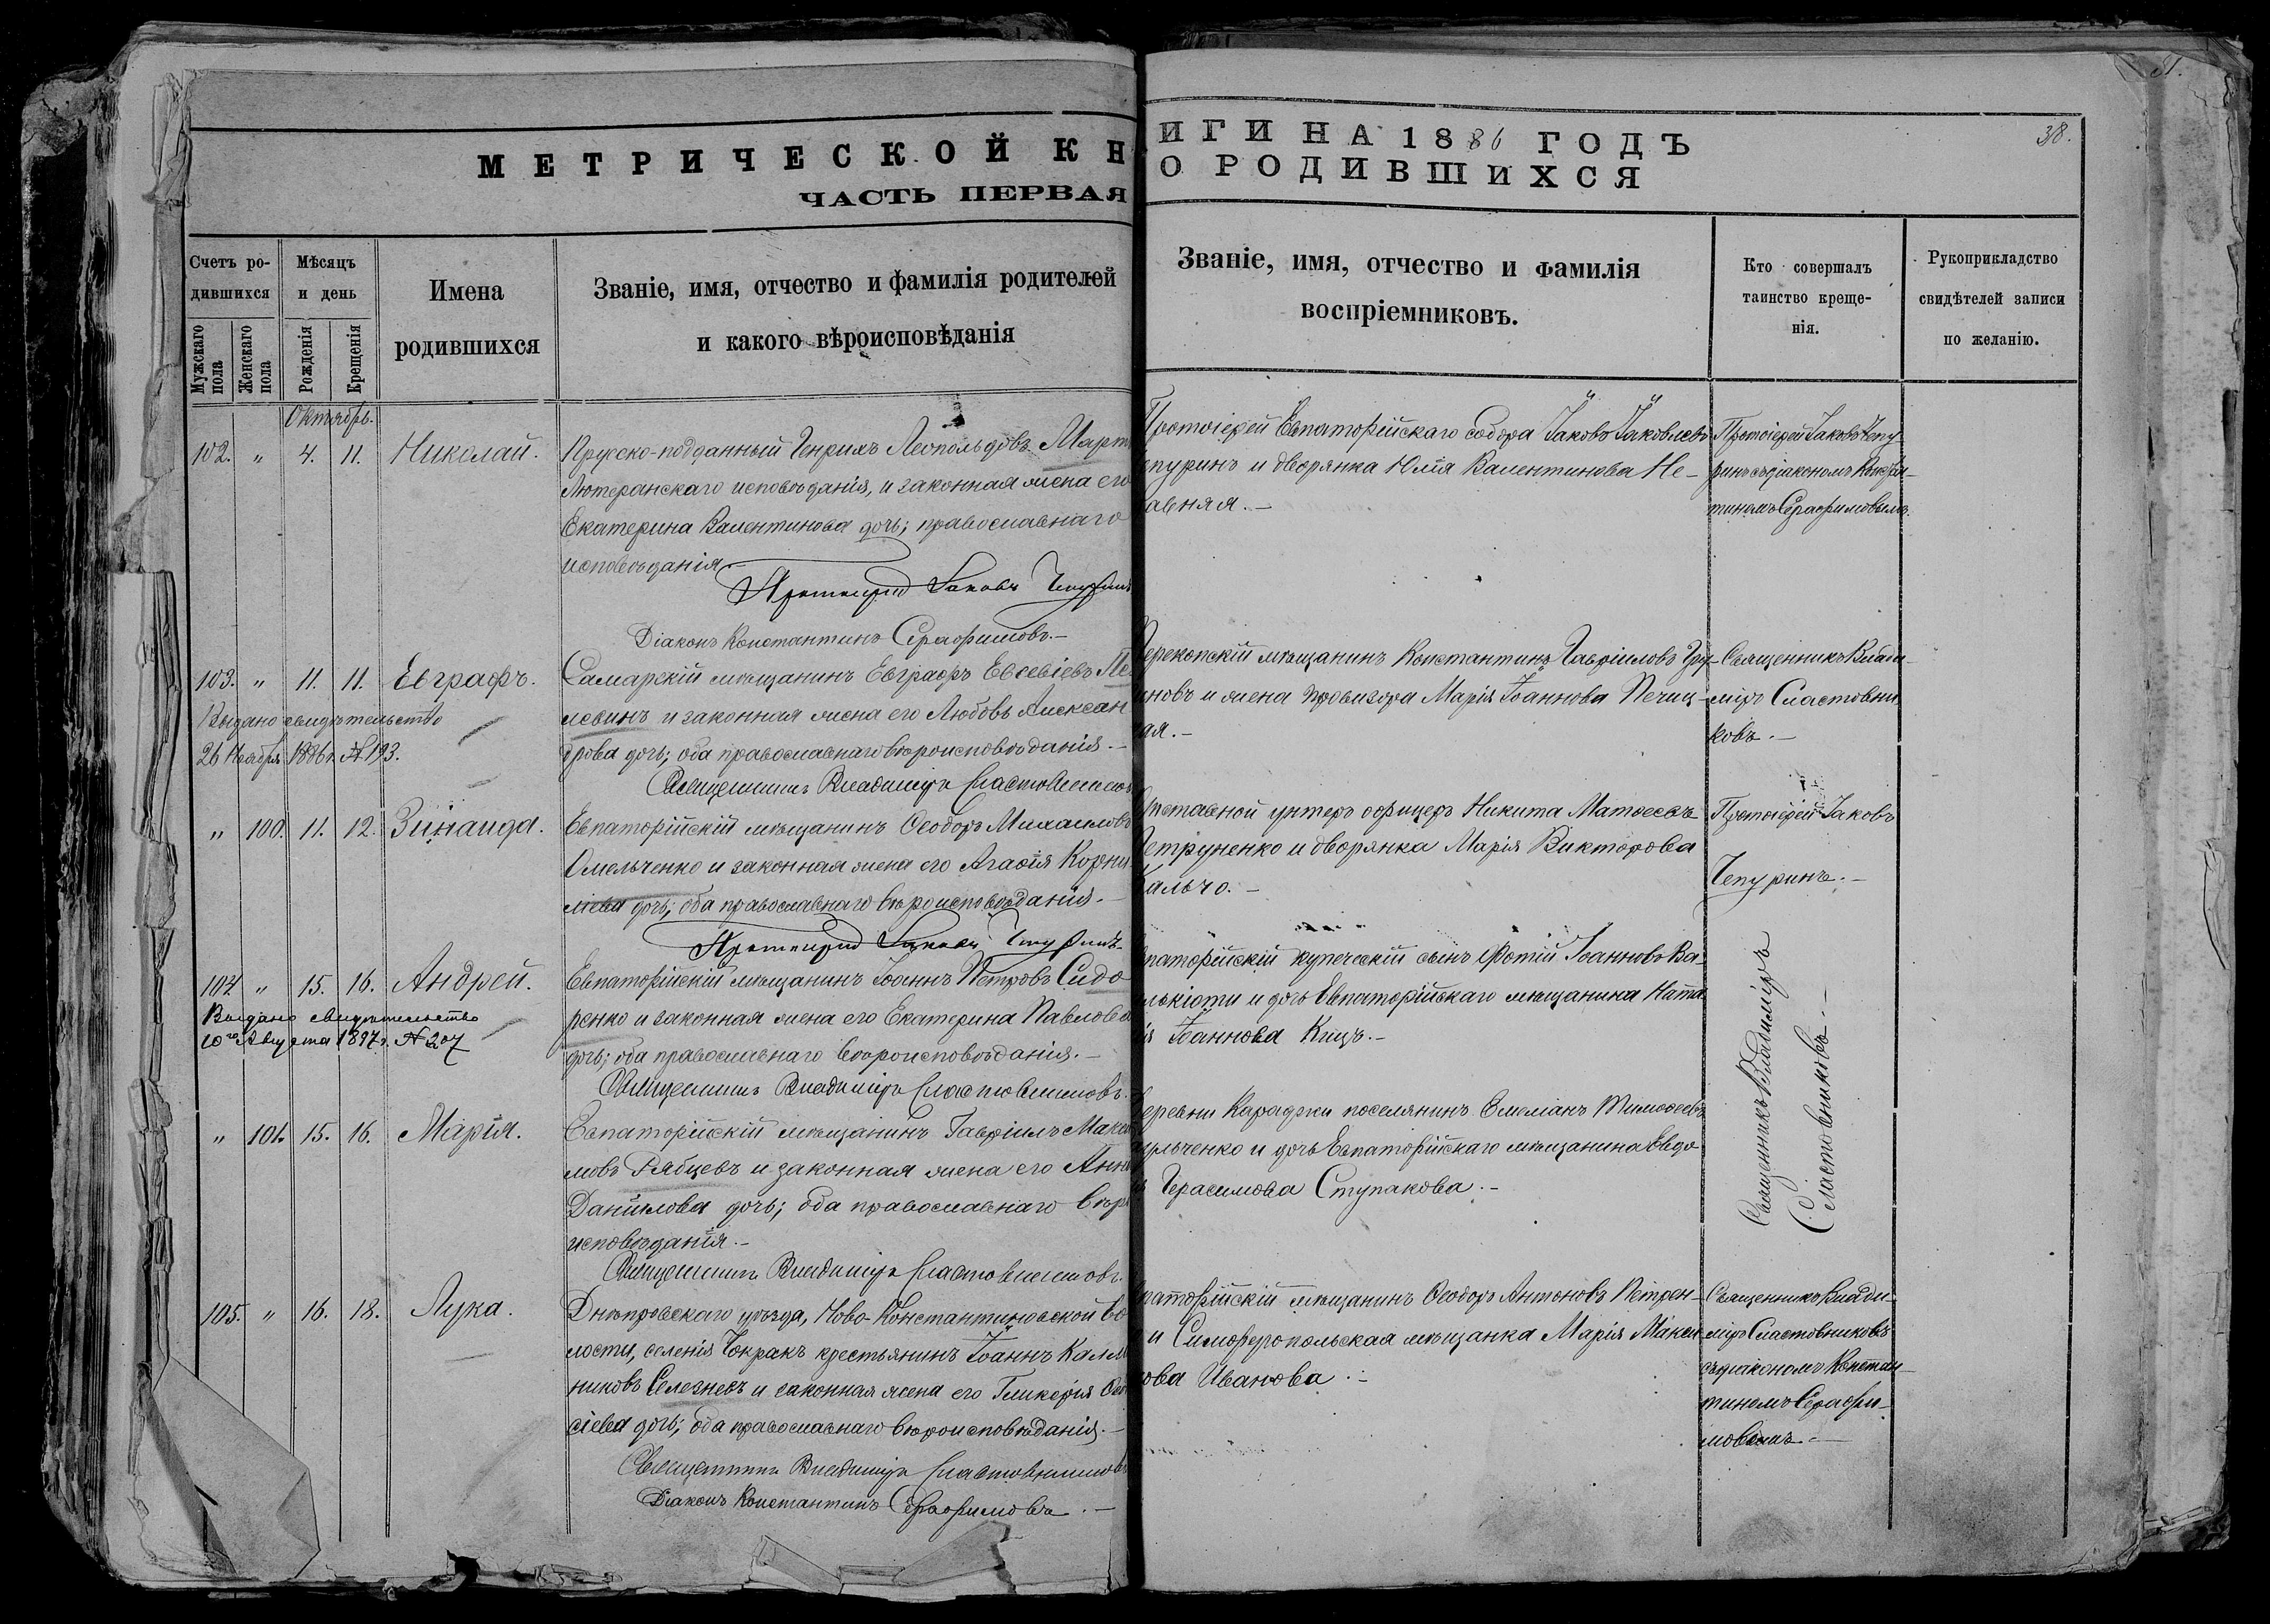 МЕТРИЧЕСКОЙ КН
ЧАСТЬ ПЕРВАЯ
Счетъ ро-
дившихся
Мѣсяцъ
и день
Имена
родившихся
Званіе, имя, отчество и фамилія родителей
и какого вѣроисповѣданія
Мужскаго
пола
Женскаго
пола
Рожденія
Крещенія
Октябрь.
102. " 4. 11. Николай.
Прусско-подданный Генрихъ Леопольдовъ Март
Лютеранскаго исповѣданія, и законная жена его
Екатерина Валентинова дочь; православнаго
исповѣданія
Протоіерей Іаковъ Чепуринъ
Діаконъ Константинъ Серафимовъ.-
103. " 11. 11. Евграфъ.
Самарскій мѣщанинъ Евграфъ Евсевіевъ
левинъ и законная жена его Любовь Алексан
дрова дочь; оба православнаго вѣроисповѣданія.-
Выдано свидѣтельство
26 Ноября 1886г. № 193.
Священникъ Владиміръ Сластовников
" 100. 11. 12. Зинаида.
Евпаторійскій мѣщанинъ Ѳеодоръ Михаиловъ
Омельченко и законная жена его Агаѳія Корни
ліева дочь; оба православнаго вѣроисповѣданія.-
Протоіерей Іаковъ Чепуринъ-
104. " 15. 16. Андрей.
Евпаторійскій мѣщанинъ Іоаннъ Петровъ Сидо
ренко и законная жена его Екатерина Павлова
дочь; оба православнаго вѣроисповѣданія.-
Выдано свидѣтельство
10го Августа 1897г. № 207
Священникъ Владиміръ Сластовниковъ.
" 101. 15. 16. Марія.
Евпаторійскій мѣщанинъ Гавріилъ Макси
мовъ Рябцевъ и законная жена его Анна
Даніилова дочь; оба православнаго вѣро
исповѣданія.-
Священникъ Владиміръ Сластовниковъ.
105. " 16. 18. Лука.
Днѣпровскаго уѣзда, Ново-Константиновской во
лости, селенія Чокракъ крестьянинъ Іоаннъ
никовъ Селезневъ и законная жена его Гликерія
сіева дочь; оба православнаго вѣроисповѣданія.-
Священникъ Владиміръ Сластовников
Діаконъ Константинъ Серафимовъ.-
38.
ИГИ НА 1886 ГОДЪ
О РОДИВШИХСЯ
Званіе, имя, отчество и фамилія
воспріемниковъ.
Кто совершалъ
таинство креще-
нія.
Рукоприкладство
свидѣтелей записи
по желанію.
Протоіерей Евпаторійскаго собора Іаковъ Іаковлевъ
пуринъ и дворянка Юлія Валентинова Не-
авняя.-
Протоіерей Іаковъ Чепу-
ринъ съ діакономъ Констан-
тиномъ Серафимовымъ.
ерекопскій мѣщанинъ Константинъ Гавріиловъ Гру-
новъ и жена провизора Марія Іоаннова Печиц-
ая.-
Священникъ Влади-
міръ Сластовни
ковъ.-
Отставной унтеръ офицеръ Никита Матѳеевъ
Петруненко и дворянка Марія Викторова
Кальчо.-
Протоіерей Іаковъ
Чепуринъ.-
паторійскій купеческій сынъ Фотій Іоанновъ Ва-
лькіоти и дочь Евпаторійскаго мѣщанина Ната
ія Іоаннова Кицъ.-
Священникъ Владиміръ
Сластовниковъ.-
Деревни Караджи поселянинъ Емеліанъ Тимоѳеевъ
ульченко и дочь Евпаторійскаго мѣщанина Евдо
Герасимова Ступакова.-
паторійскій мѣщанинъ Ѳеодоръ Антоновъ Петрен-
и Симферопольская мѣщанка Марія Макси
ова Иванова.-
Священникъ Влади-
міръ Сластовниковъ
съ діакономъ Констан-
тиномъ Серафи-
мовымъ.-